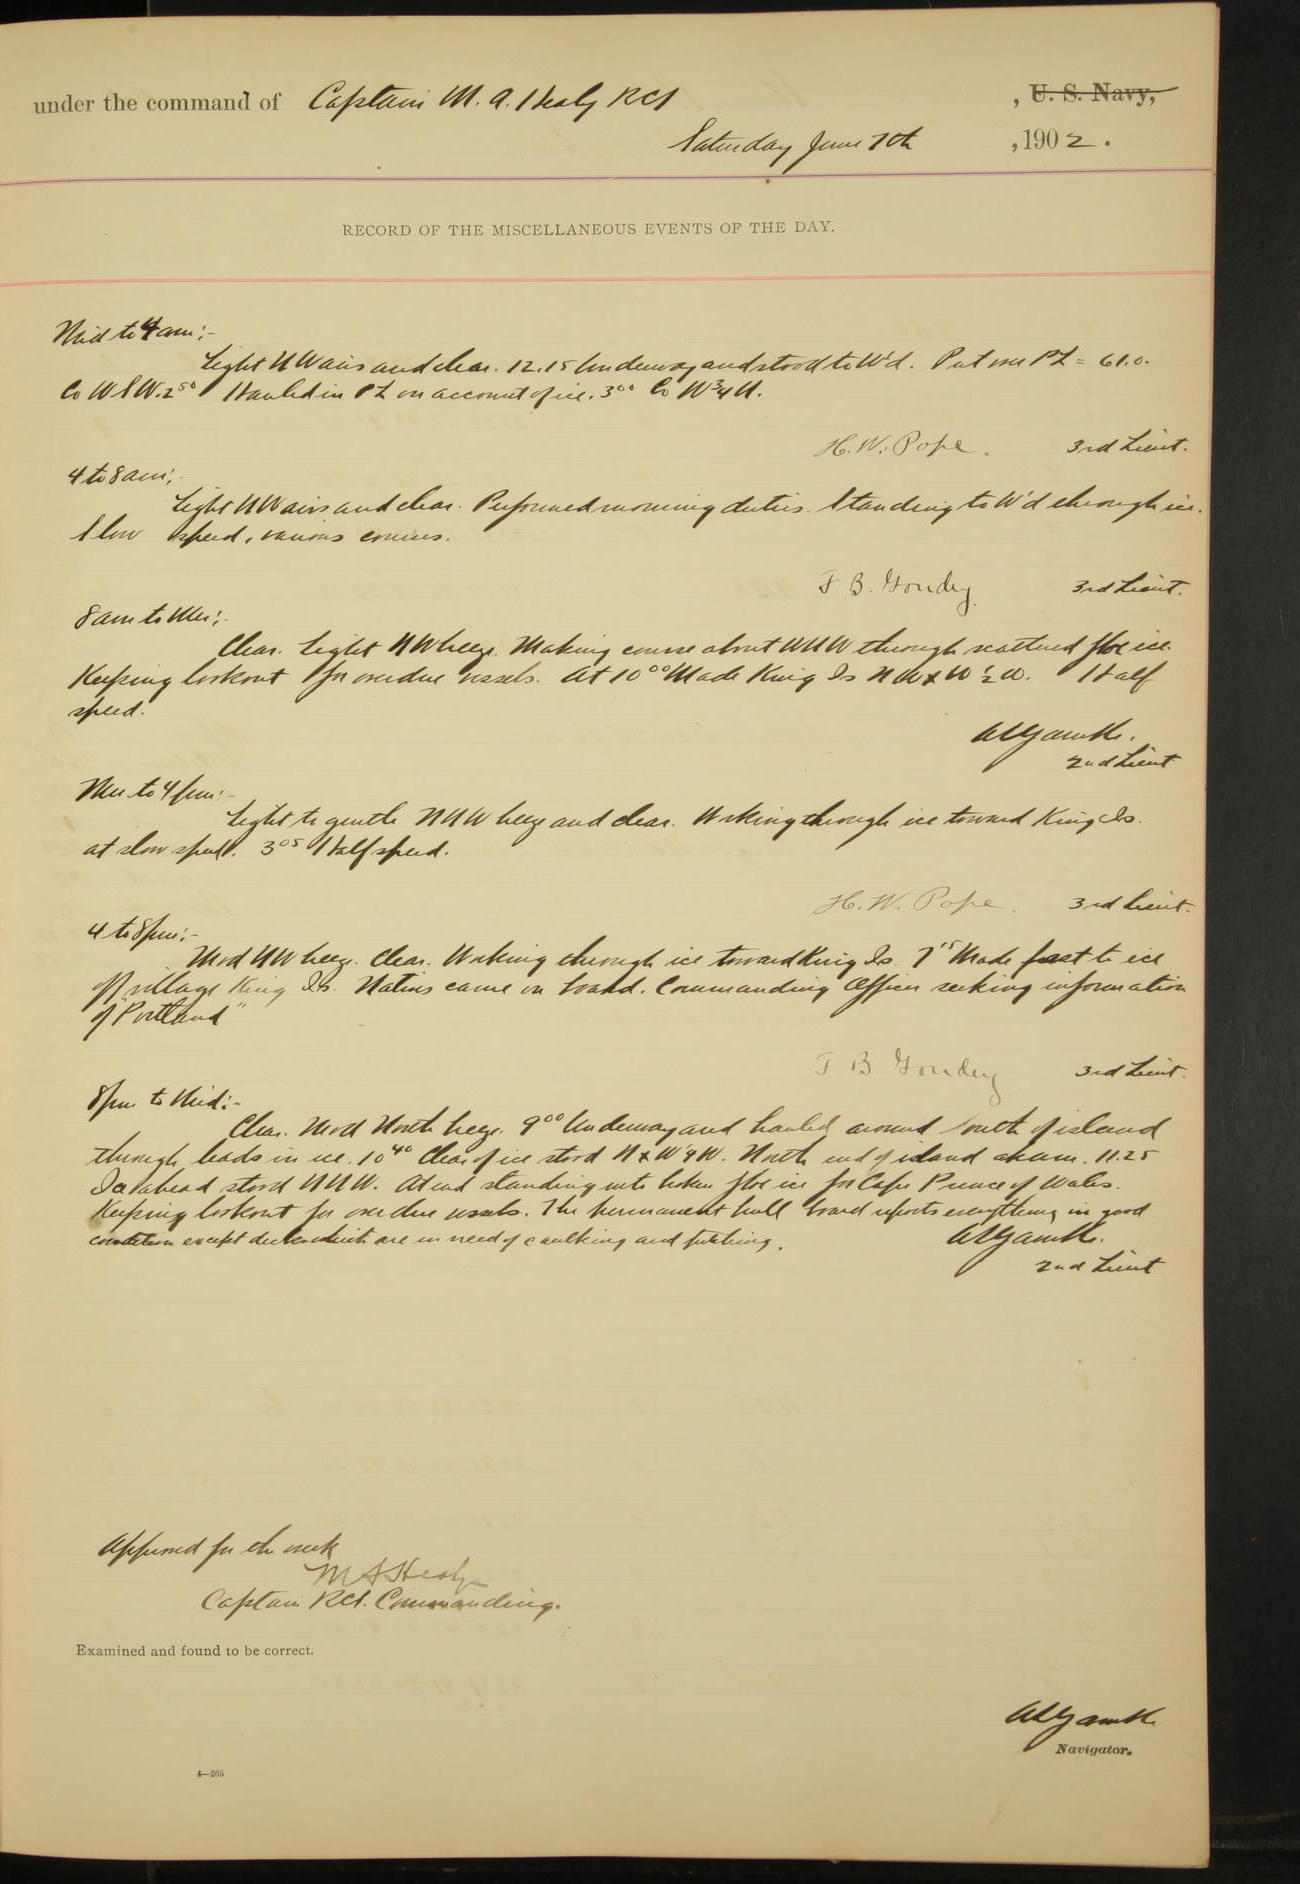 under the command of Captain M. A. Healy RCS , U. S. Navy,
Saturday June 7th , 1902.
RECORD OF THE MISCELLANEOUS EVENTS OF THE DAY.
Mid to 4 am:-
Light NW airs and clear. 12.15 Underway and stood to W'd. Put over PL = 61.0.
Co WSW. 2⁵⁰ Hauled in PL on account of ice. 3⁰⁰ Co W¾N.
H. W. Pope. 3rd Lieut.
4 to 8 am:-
Light NW airs and clear. Performed morning duties. Standing to W'd through ice.
Slow speed, various courses.
3rd Lieut.
8 am to Mer:-
Clear. Light NW breeze. Making course about WNW through scattered floe ice.
Keeping lookout for overdue vessels. At 10⁰⁰ Made King Is NWxW½W. Half
speed.
2nd Lieut
Mer to 4 pm:-
Light to gentle NNW breeze and clear. Working through ice toward King Is.
at slow speed. 3⁰⁵ Half speed.
H. W. Pope. 3rd Lieut.
4 to 8 pm:-
Mod NW breeze. Clear. Working through ice toward King Is. 7¹⁵ Made fast to ice
off village King Is. Natives came on board. Commanding Officer seeking information
of "Portland"
3rd Lieut.
8 pm to Mid:-
Clear. Mod North breeze. 9⁰⁰ Underway and hauled around South of island
through leads in ice. 10⁴⁰ Clear of ice stood NxW¼W. North end of island abeam. 11.25
Ice ahead stood NNW. At end standing into broken floe ice for Cape Prince of Wales.
Keeping lookout for overdue vessels. The permanent hull board reports everything in good
condition except decks which are in need of caulking and pitching.
2nd Lieut
Approved for the week
M A Healy
Captain RCS. Commanding.
Examined and found to be correct.
Navigator.
4—265